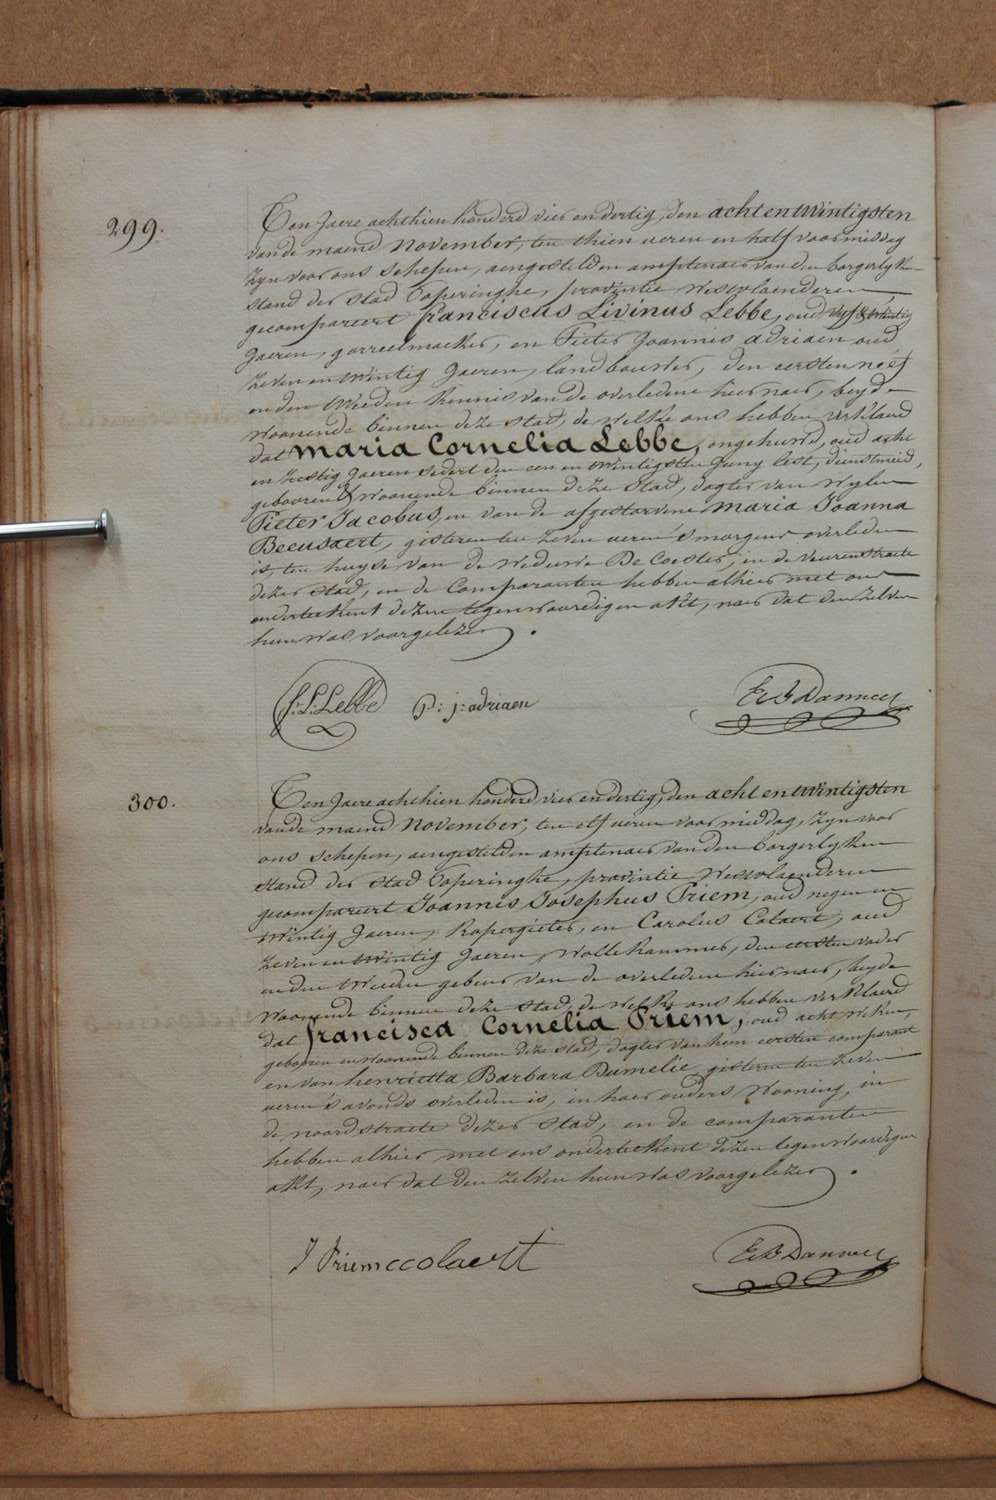 299.
Ten Jaere achthien honderd vier en dertig, den acht en twintigsten
van de maend November, ten thien ueren en half voormiddag
zyn voor ons schepen, aengestelden amptenaer van den borgerlyken
stand der stad Poperinghe, provintie Westvlaenderen
gecompareert franciscus Livinus Lebbe, oud vyf & twintig
Jaeren, gorreelmaeker, en Pieter Joannis adriaen oud
zeven en twintig Jaeren, landbouwer, den eersten neef
en den tweeden kennis van de overledene hiernaer, beyde
woonende binnen deze stad, de welke ons hebben verklaerd
dat maria Cornelia Lebbe, ongehuwd, oud acht
en zestig Jaeren sedert den een en twintigsten Juny lest, dienstmeid,
gebooren & woonende binnen deze Stad, dogter van wylen
Pieter Jacobus, en van de afgestorvene maria Joanna
Beeusaert, gisteren ten zeven ueren 's morgens overleden
is, ten huyse van de Weduwe De Coester, in de veurenstraete
dezer stad, en de Comparanten hebben alhier met ons
onderteekent dezen tegenwoordigen akt, naer dat den zelven
hun was voorgelezen.
f: L: Lebbe p: j: adriaen
300.
Ten Jaere achthien honderd vier en dertig, den acht en twintigsten
van de maend November, ten elf ueren voormiddag, zyn voor
ons schepen, aengestelden amptenaer van den borgerlyken
stand der stad Poperinghe, provintie Westvlaenderen
gecompareert Joannis Josephus Priem, oud negen en
twintig Jaeren, kopergieter, en Carolus Colaert, oud
zeven en twintig Jaeren, wollekammer, den eersten vader
en den tweeden gebuer van de overledene hiernaer, beyde
woonende binnen deze stad, de welke ons hebben verklaerd
dat francisca Cornelia Priem, oud acht weken,
gebooren en woonende binnen deze stad, dogter van hem eersten comparant
en van henrietta Barbara Dumelie, gisteren ten zeven
ueren 's avonds overleden is, in haer ouders wooning, in
de noordstraete dezer stad, en de comparanten
hebben alhier met ons onderteekent dezen tegenwoordigen
akt, naer dat den zelven hun was voorgelezen.
J Priem c colaert